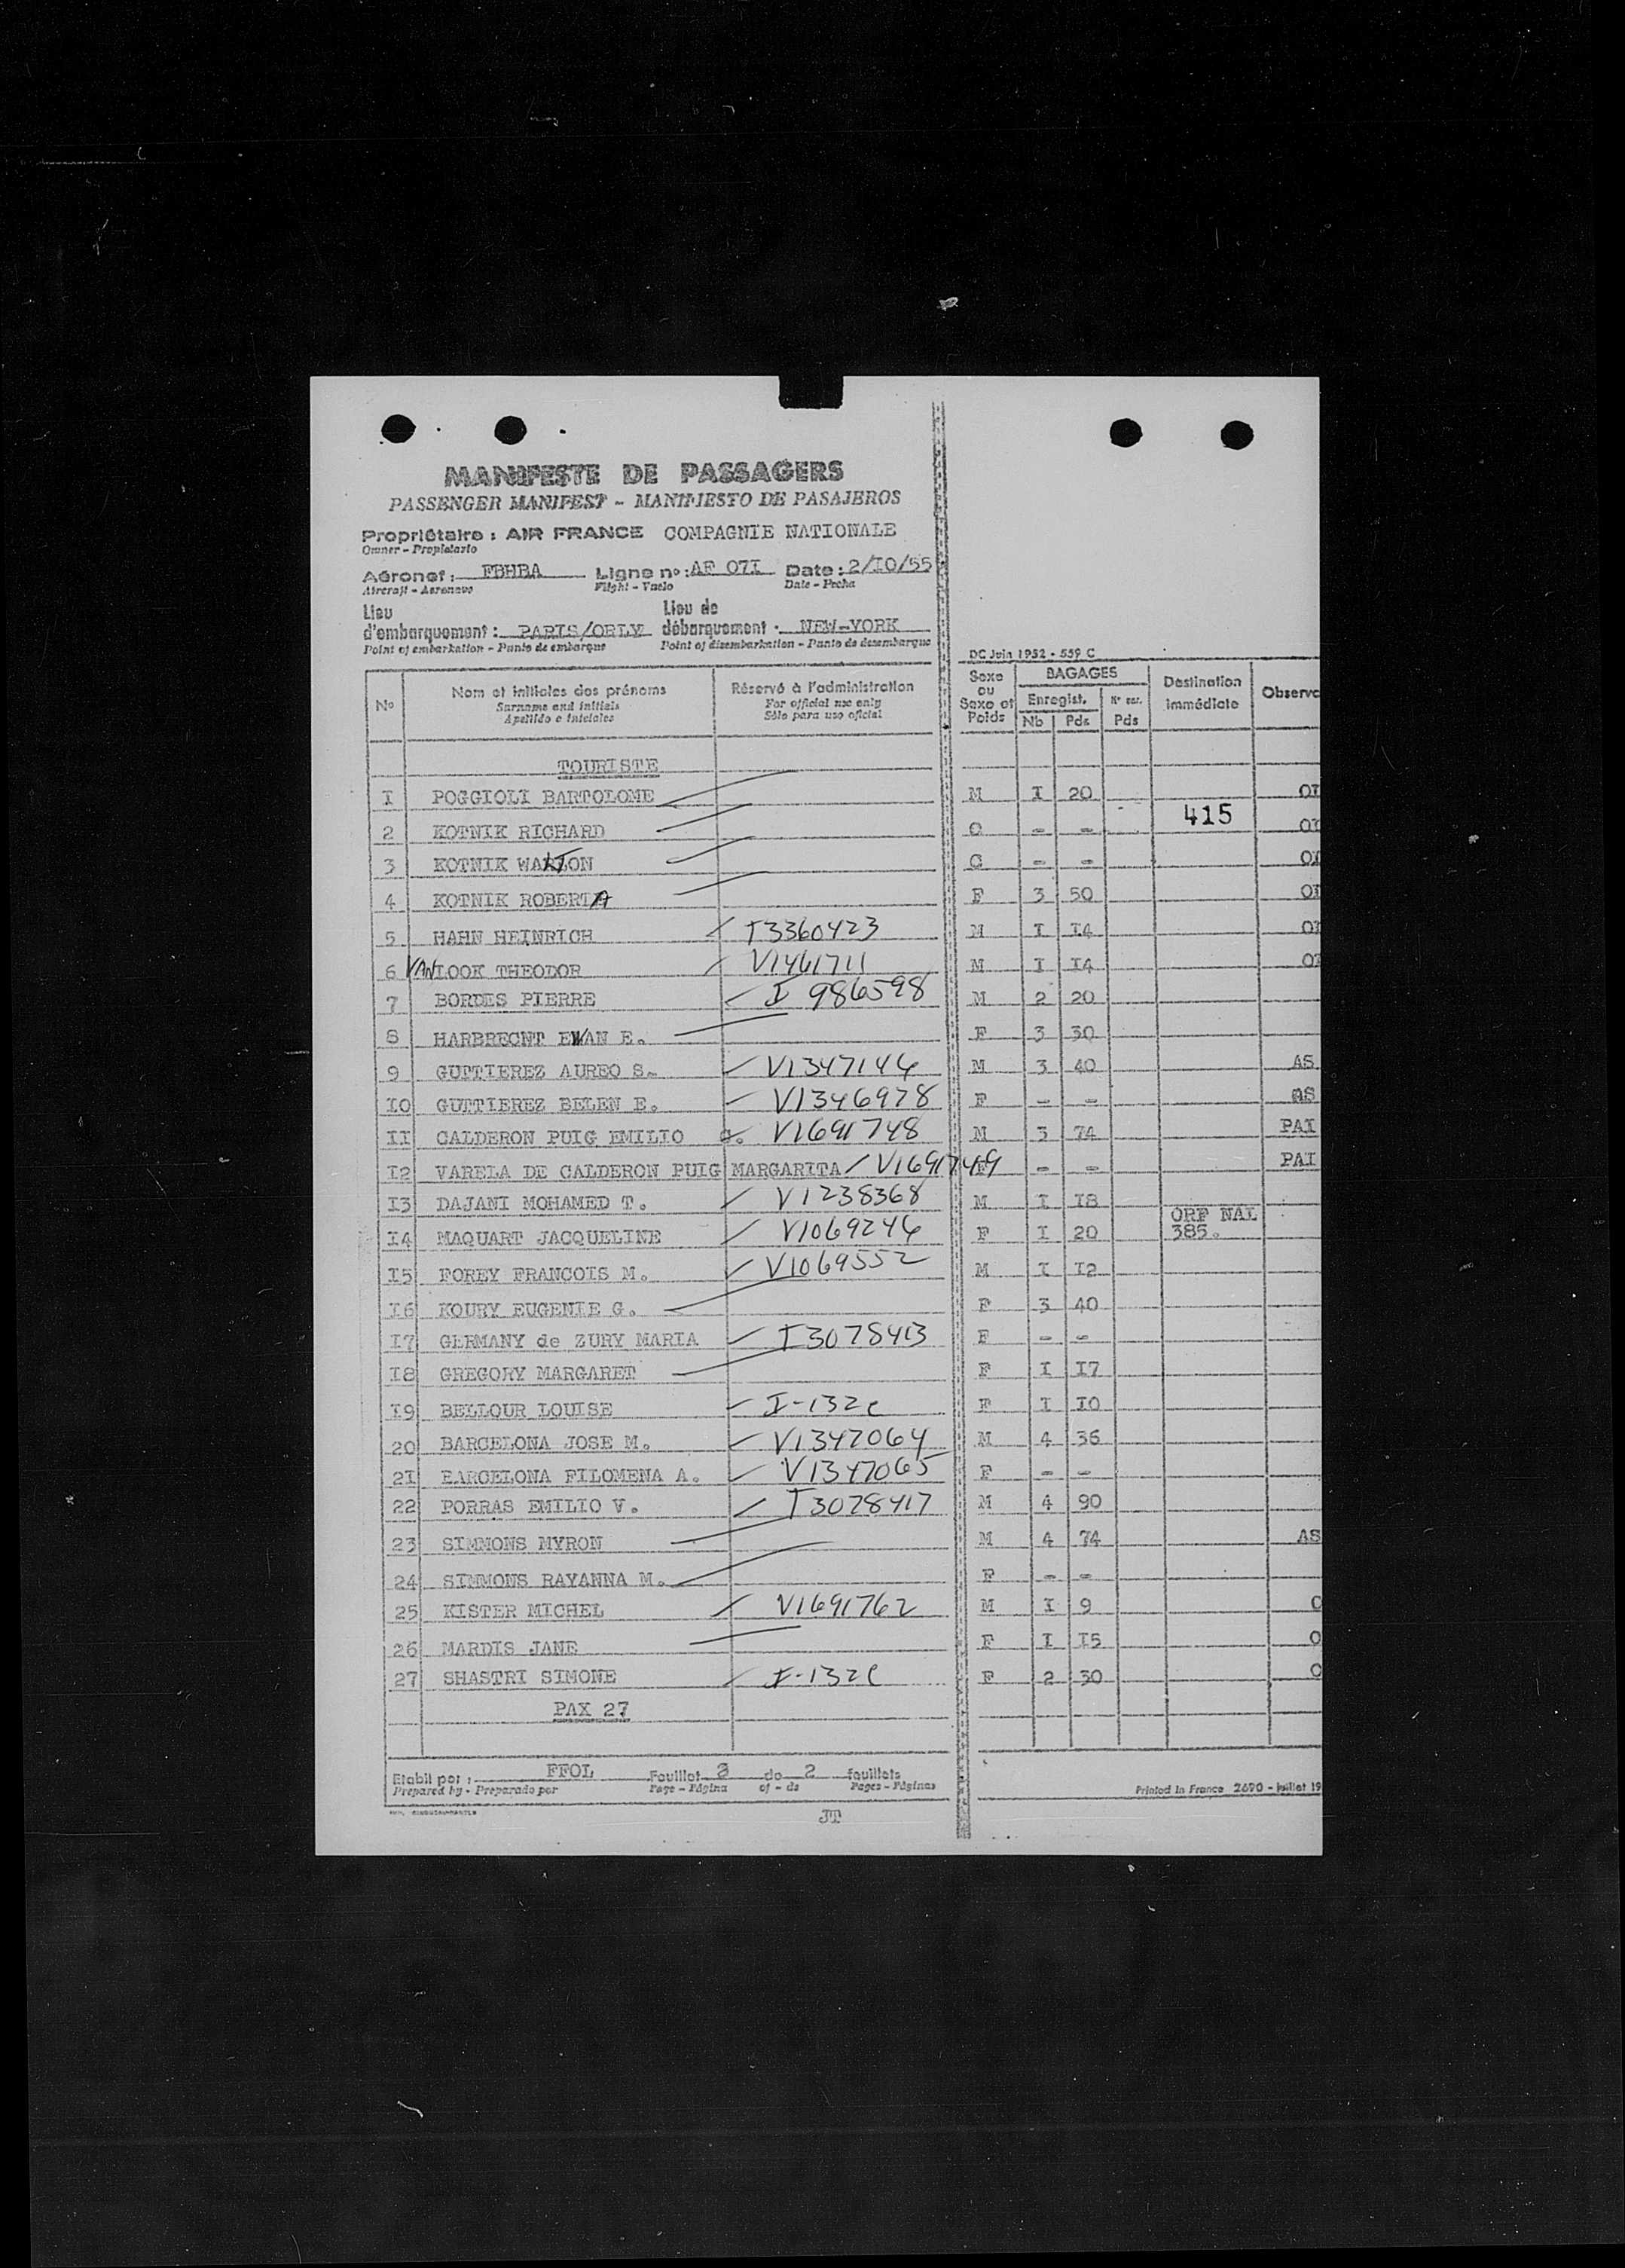 MANIFESTE DE PASSAGERS
PASSENGER MANIFEST - MANIFIESTO DE PASAJEROS
Propriétaire : AIR FRANCE COMPAGNIE NATIONALE
Owner - Propietario
Aéronef : FBHBA Ligne no : AF 07I Date : 2/IO/55
Aircraft - Aeronave Flight - Vuelo Date - Fecha
Lieu d'embarquement : PARIS/ORLY Lieu de débarquement : NEW-YORK
Point of embarkation - Punto de embarque Point of disembarkation - Punto de desembarque
DC Juin 1952 - 559 C
No Nom et initiales des prénoms Réservé à l'administration Sexe ou Sexe et Poids BAGAGES Destination immédiate Observa
Surname and initials For official use only Enregist. Nb Pds Pds
Apellido e iniciales Sólo para uso oficial
TOURISTE
I POGGIOLI BARTOLOME M I 20 OI
415
2 KOTNIK RICHARD C - - OI
3 KOTNIK WALTON C - - OI
4 KOTNIK ROBERTA F 3 50 OI
5 HAHN HEINRICH T3360423 M I I4 OI
6 VAN LOOK THEODOR V1461711 M I I4 OI
7 BORDES PIERRE I 986598 M 2 20
8 HARBRECHT EWAN E. F 3 30
9 GUTTIEREZ AUREO S. V1347144 M 3 40 AS
IO GUTTIEREZ BELEN E. V1346978 F - - AS
II CALDERON PUIG EMILIO G. V1691748 M 3 74 PAI
I2 VARELA DE CALDERON PUIG MARGARITA V1691749 F - - PAI
I3 DAJANI MOHAMED T. V1238368 M I I8
I4 MAQUART JACQUELINE V1069244 F I 20 ORF NAL 385.
I5 FOREY FRANCOIS M. V1069552 M I I2
I6 KOURY EUGENIE G. F 3 40
I7 GERMANY de ZURY MARIA T3078413 F - -
I8 GREGORY MARGARET F I I7
I9 BELLOUR LOUISE I-132c F I IO
20 BARCELONA JOSE M. V1347064 M 4 36
2I BARCELONA FILOMENA A. V1347065 F - -
22 PORRAS EMILIO V. T3078417 M 4 90
23 SIMMONS MYRON M 4 74 AS
24 SIMMONS RAYANNA M. F - -
25 KISTER MICHEL V1691762 M I 9 O
26 MARDIS JANE F I I5 O
27 SHASTRI SIMONE I-132c F 2 30 O
PAX 27
Etabli par : FFOL Feuillet 2 de 2 feuillets
Prepared by - Preparado por Page - Página of - de Pages - Páginas
Printed in France 2690 - juillet 19
JT